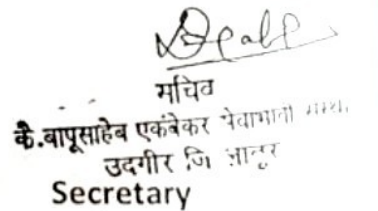 सचिव
कै.बापूसाहेब एकंबेकर सेवाभावी संस्था,
उदगीर जि लातूर
Secretary